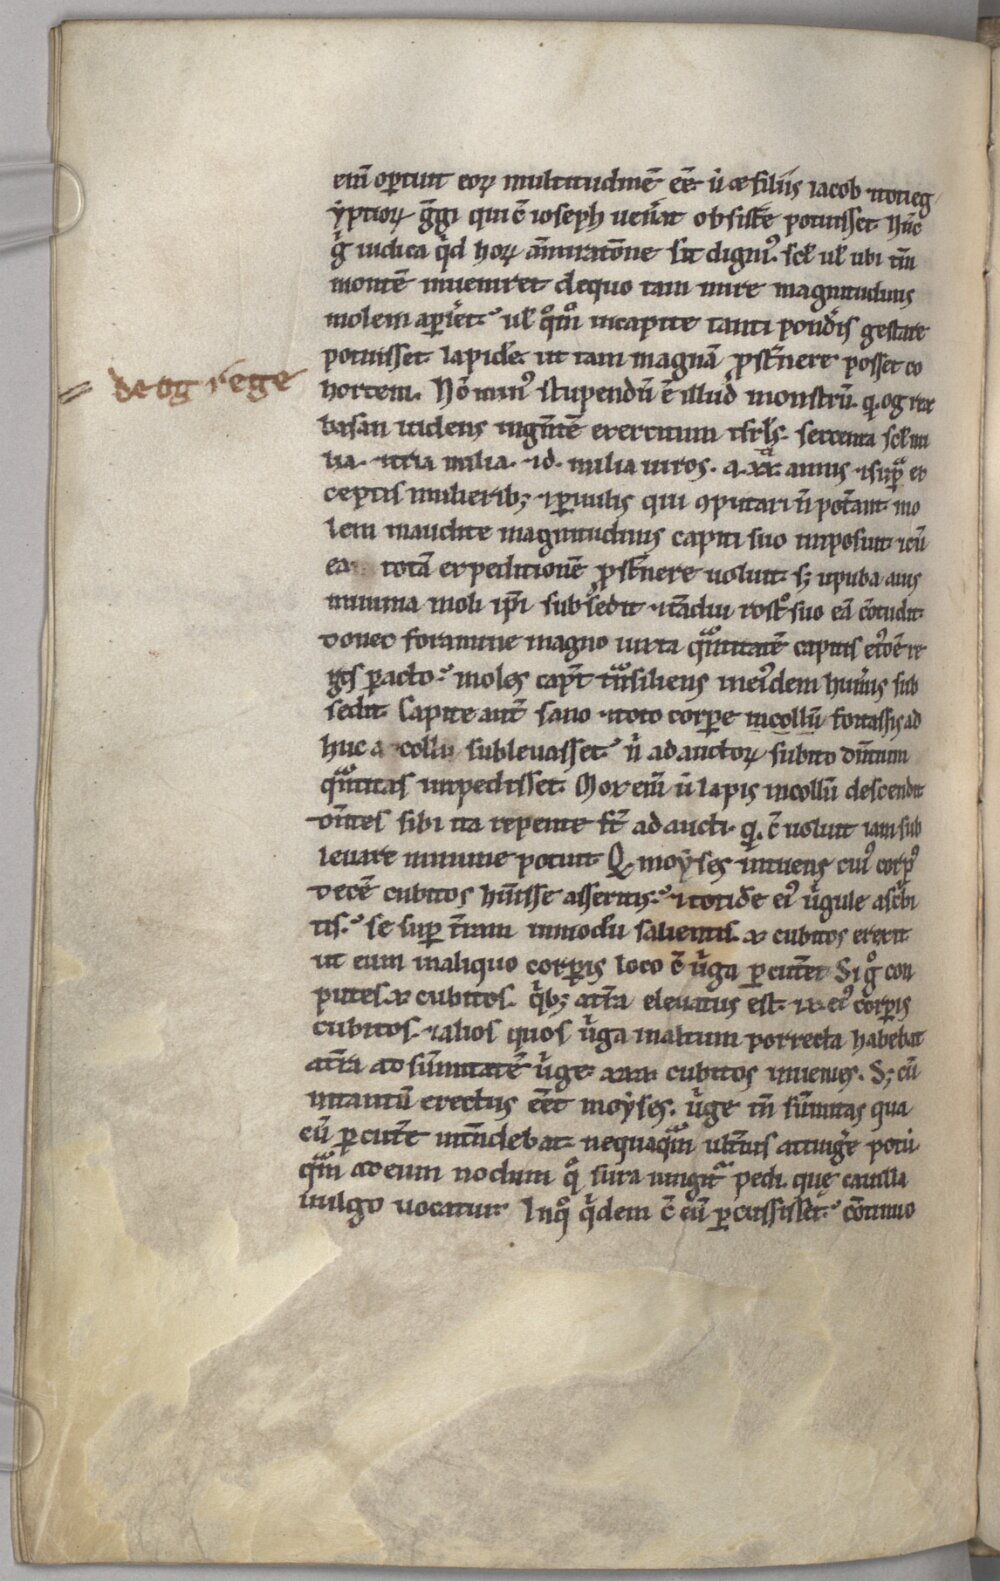 em̄ oꝑtuit eoꝝ multitudinē eē. ū a filiis iacob ⁊ toti eg
yptioꝝ ḡgi qui c̄ ioseph uen̄at obsist̄e potuisset. Nūc
g̊ iudica qͥd hoꝝ ām̄iratōne sit dignꝰ. scł uł ubi tm̄
montē inueniret de quo tam mire magnitudinis
molem apīet. uł qͦm̊ in capite tanti pondīs gestare
potuisset lapidē. ut tam magnā ꝓst̄nere posset co
de og rege
hortem. Nō minꝰ stupendū ē illud monstrū. q. og rex
basan uidens ingn̄tē exercitum isrł's. sexcenta scł mi
lia. ⁊ tria milia. ⁊ d. milia uiros. a .xx. annis ⁊ supᵃ ex
ceptis mulieribꝫ ⁊ ꝑuulis qui ꝯputari n̄ pot̄ant. mo
lem inaudite magnitudinis capiti suo imposuit. ⁊ cū
ea totā expeditionē ꝓst̄nere uoluit. sꝫ upupa auis
minima moli ip̄i subsedit ⁊ tādiu rost̊ suo eā c̄tudit.
donec foramine magno iuxta qᵃntitatē capitis eiꝰdē re
gis ꝑacto. moles capᷣt tᵃnsiliens in eiꝰdem hum̄is sub
sedit. Capite aut̄ sano ⁊ toto corpore in collū fortassis ad
huc a collo subleuasset. n̄ ad auctoꝝ subito dn̄tium
qᵃntitas impedisset. Mox em̄ ū lapis in collū descendit
dn̄tes sibi ita repente st̄ adaucti. q. c̄ uoluit iam sub
leuare minime potuit. Q̨ moyses intuens cuiꝰ corpꝰ
decē cubitos hūisse asseritis. ⁊ totidē eiꝰ uͥgule ascͥbi
tis. se suꝑ t̄ram in modū salientis .x. cubitos erexit
ut eum in aliquo corꝑis loco c̄ uͥga ꝑcut̄et. Si g̊ con
putes .x. cubitos. qͥbꝫ a t̄ra eleuatus est. ⁊ .x. eiꝰ corꝑis
cubitos. ⁊ alios quos uͥga in altum porrecta habebat
a t̄ra ad sūmitatē uͥge .xxx. cubitos inuenies. Sꝫ cū
in tantū erectus eēt moyses. uͥge tn̄ sūmitas qua
eū ꝑcut̄e intendebat. nequaqᵃm ult̄ius attinḡe potu
qᵃm ad eum nodum q̊ sura iungitᵃ pedi. quę cauilla
uulgo uocatur. In q̊ qͥdem c̄ eū ꝑcussisset. c̄tinuo